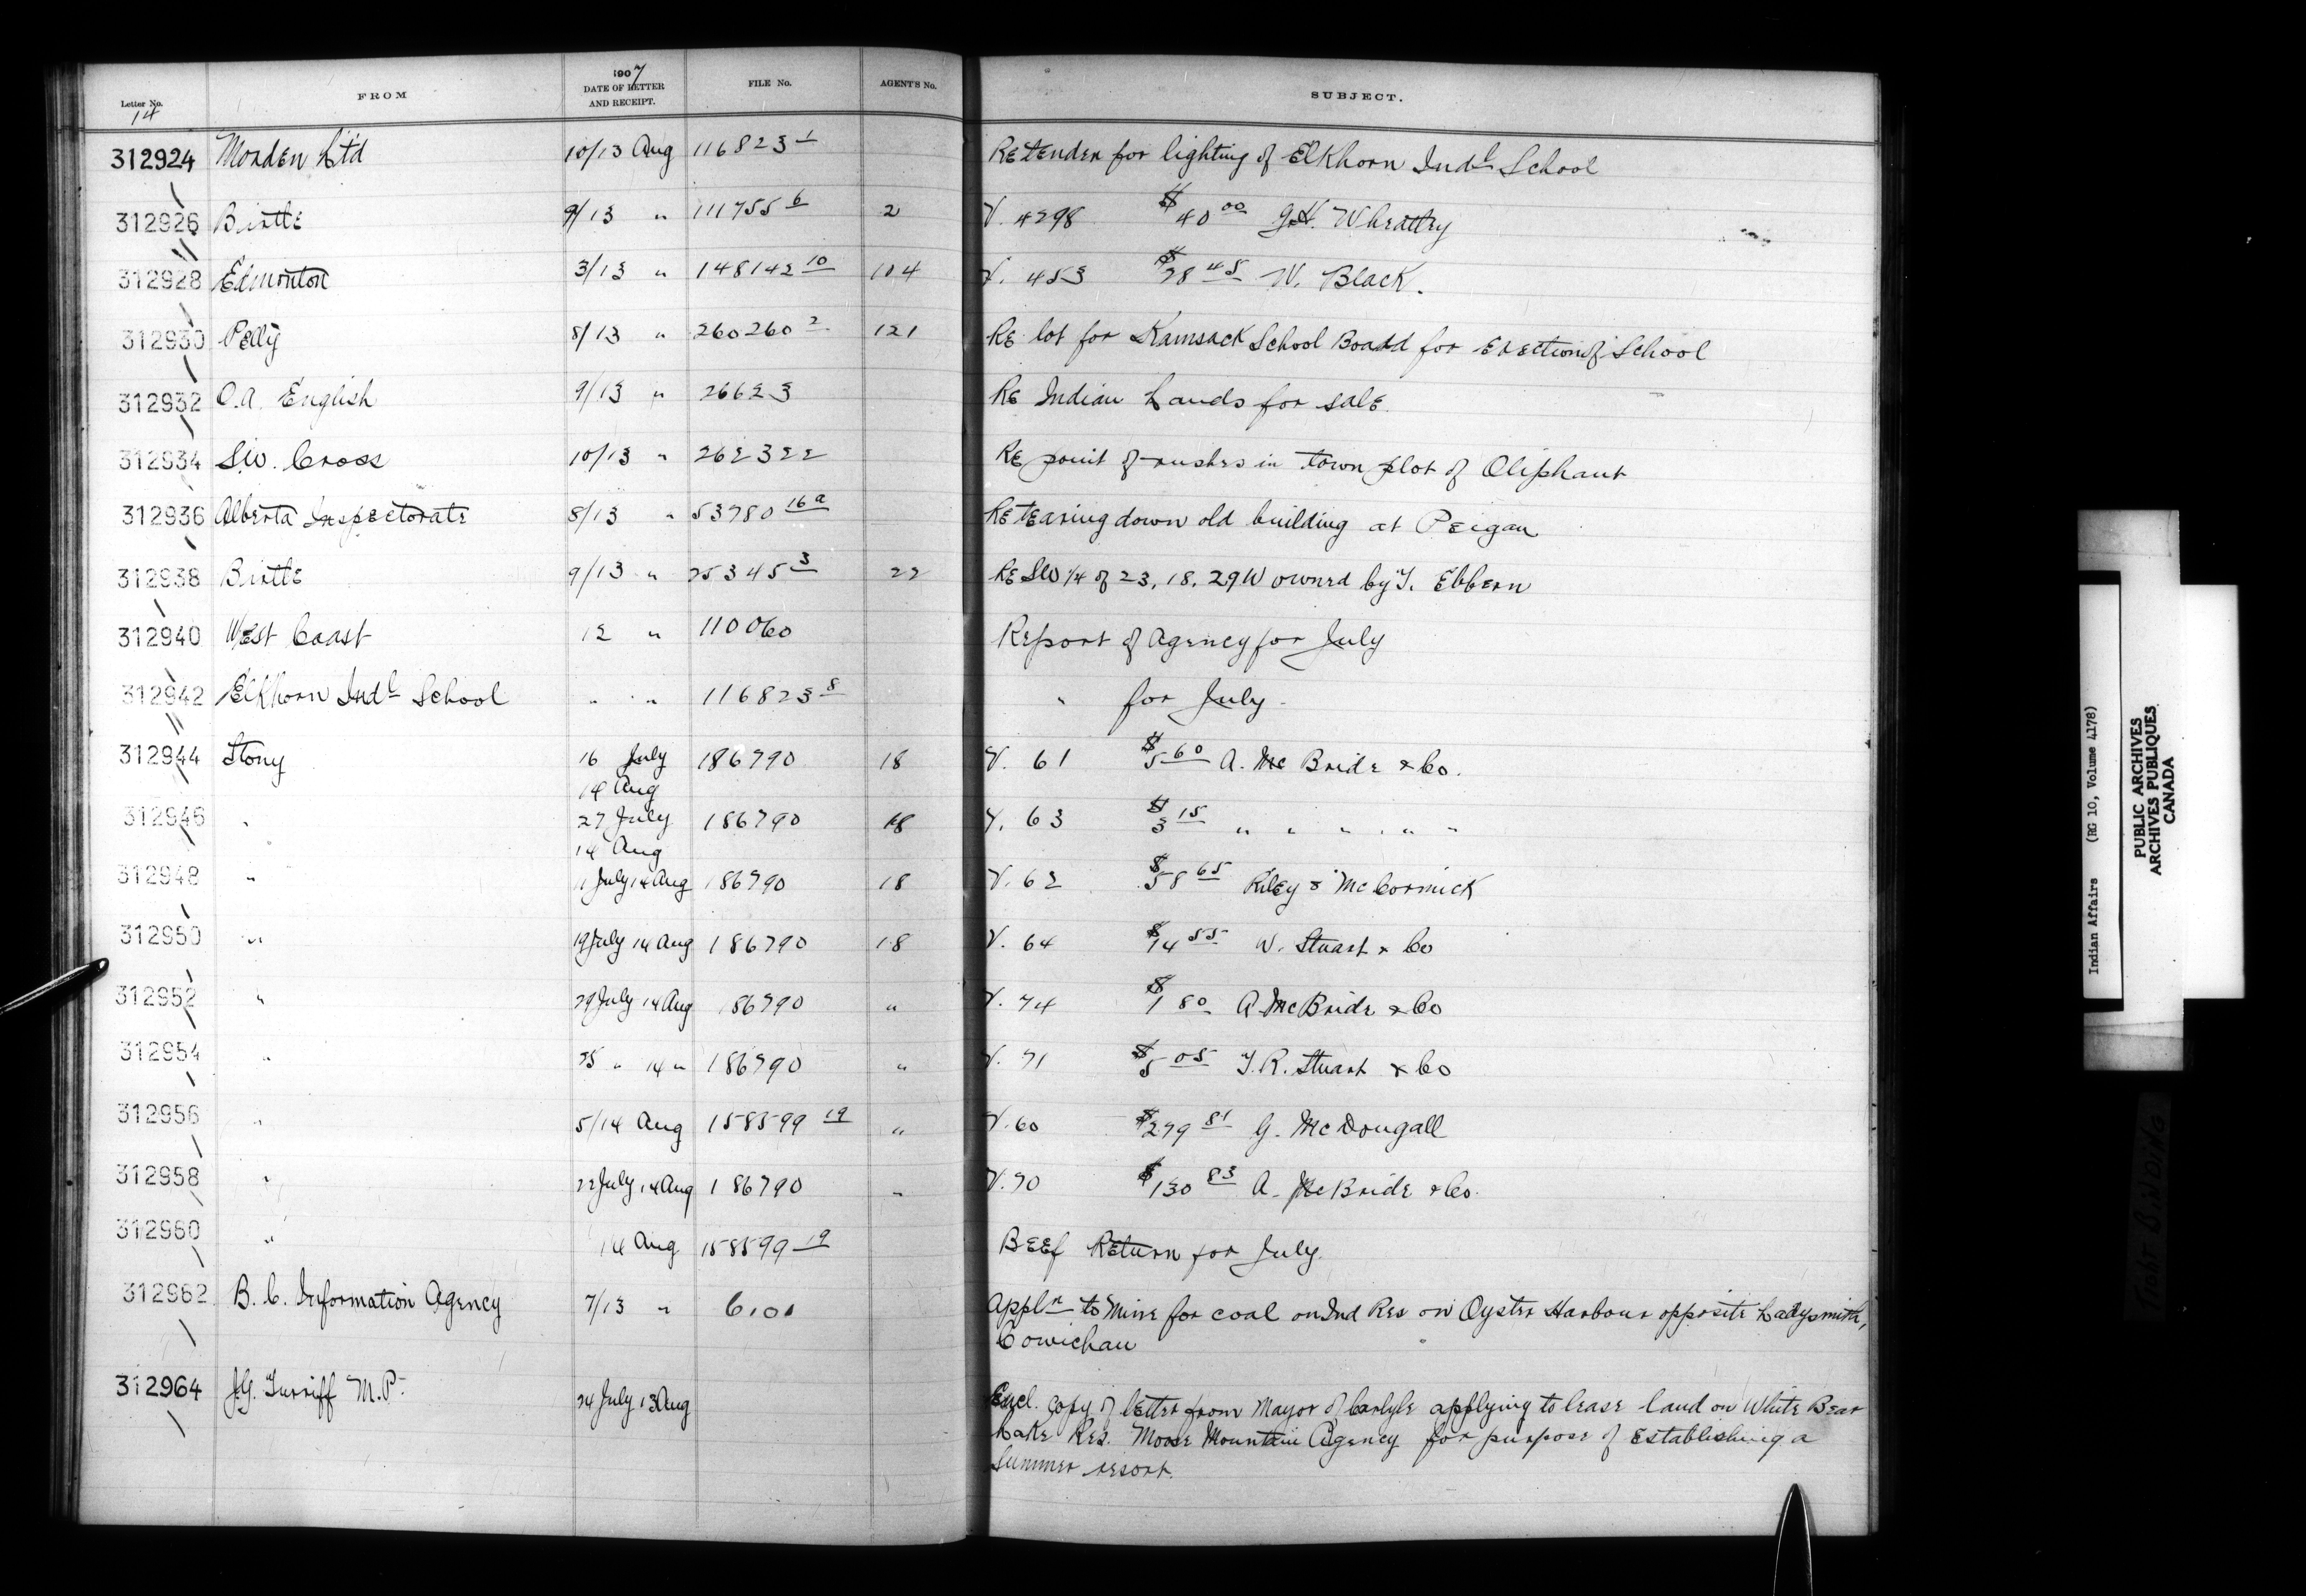 1907
Letter No. FROM DATE OF LETTER AND RECEIPT. FILE No. AGENT'S No. SUBJECT.
14
312924 Morden Ltd 10/13 Aug 116823 1 Re tender for lighting of Elkhorn Indl School
312926 Birtle 9/13 " 111755 6 2 V. 4298 $40 00 G.H. Wheatley
312928 Edmonton 3/13 " 148142 10 104 V. 453 $78 45 W. Black.
312930 Pelly 8/13 " 260260 2 121 Re lot for Kamsack School Board for Erection of School
312932 O.A. English 9/13 " 26623 Re Indian Lands for sale.
312934 S.W. Cross 10/13 " 262322 Re point of rushes in town plot of Oliphant
312936 Alberta Inspectorate 8/13 " 53780 16a Re tearing down old building at Peigan
312938 Birtle 9/13 " 25345 3 22 Re SW 1/4 of 23, 18, 29W owned by T. Ebbern
312940 West Coast 12 " 110060 Report of Agency for July
312942 Elkhorn Indl School " " 116823 8 " for July.
312944 Stony 16 July 186790 18 V. 61 $5 60 A. McBride & Co.
14 Aug
312946 " 27 July 186790 18 V. 63 $3 15 " " " " " "
14 Aug
312948 " 11 July 14 Aug 186790 18 V. 62 $58 65 Riley & McCormick
312950 " 19 July 14 Aug 186790 18 V. 64 $14 55 W. Stuart & Co
312952 " 29 July 14 Aug 186790 " V. 74 $1 80 A McBride & Co
312954 " 25 " 14 " 186790 " V. 71 $5 05 T.R. Stuart & Co
312956 " 5/14 Aug 158599 19 " V. 60 $279 81 G. McDougall
312958 " 22 July 14 Aug 186790 " V. 70 $130 83 A. McBride & Co.
312960 " 14 Aug 158599 19 Beef Return for July.
312962 B.C. Information Agency 7/13 " 6101 Appln to mine for coal on Ind Res on Oyster Harbour opposite Ladysmith,
Cowichan
312964 J.G. Turriff M.P. 24 July 13 Aug Encl. copy of letter from Mayor of Carlyle applying to lease land on White Bear
Lake Res. Moose Mountain Agency for purpose of establishing a
summer resort.
Indian Affairs (RG 10, Volume 4178)
PUBLIC ARCHIVES
ARCHIVES PUBLIQUES
CANADA
TIGHT BINDING